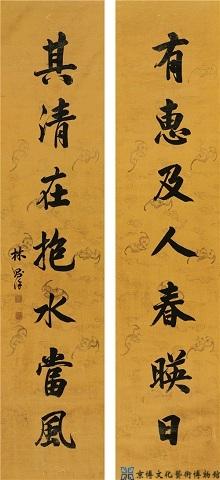 有惠及人春暎日
其清在抱水當風
林則徐
京傅文化藝術博物館